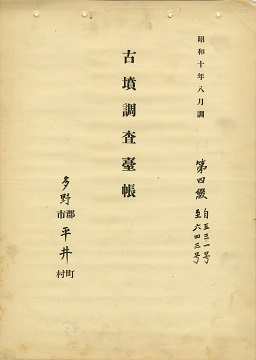 昭和十年八月調
第四綴 自五三一号
至六四三号
古墳調査臺帳
多野郡市平井町村